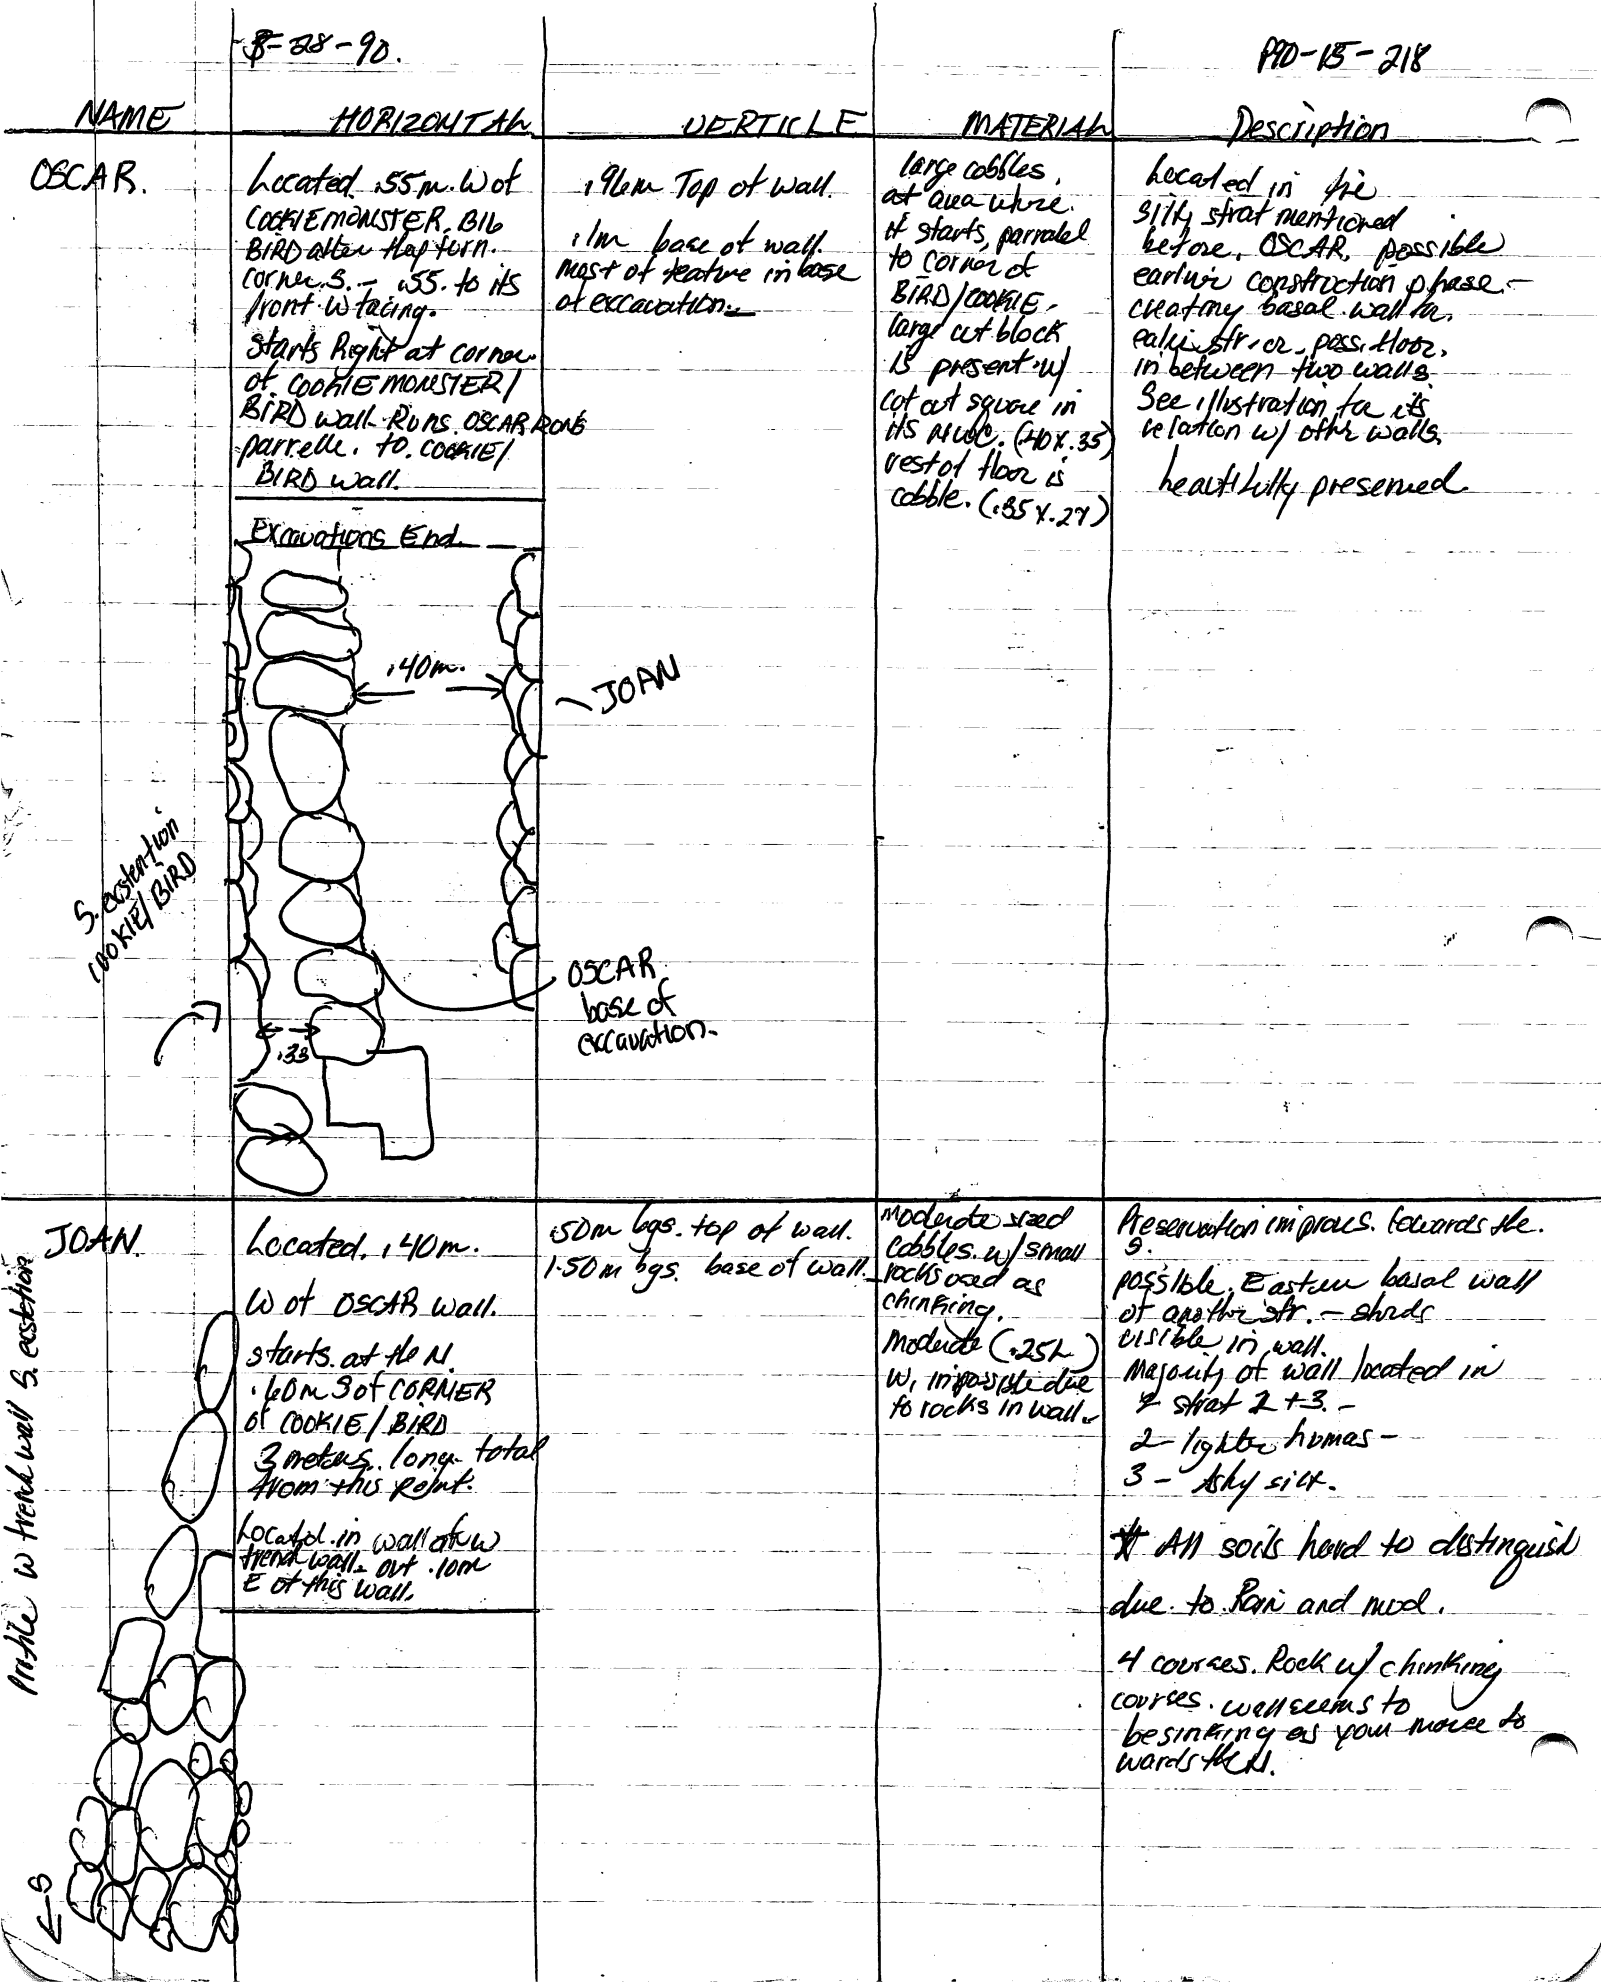 5-28-90.
P90-15-218
NAME
HORIZONTAL
VERTICLE
MATERIAL
Description
OSCAR.
Located .55m. W of
COOKIEMONSTER. BIG
BIRD after they turn.
corner. S. - .55. to its
front W facing.
Starts Right at corner
of COOKIE MONSTER/
BIRD wall Runs. OSCAR RUNS
parrelle. to. COOKIE/
BIRD wall.
.96m Top of wall.
.1m base of wall.
most of feature in base
of excavation.
large cobbles.
at area where.
it starts, parralel
to corner of
BIRD/COOKIE.
large cut block
is present w/
cut out square in
its (.40 x .35)
rest of floor is
cobble. (.35 x .27)
Located in the
silty strat mentioned
before. OSCAR. possible
earlier construction phase. -
creating basal wall for.
str. or. poss. floor.
in between two walls.
See illustration for its
relation w/ other walls.
beautifully preserved.
Excavations End.
.40m.
JOAN
S. extention
COOKIE/BIRD
OSCAR
base of
excavation.
.33
JOAN.
Located. .40m.
W of OSCAR wall.
starts. at the N.
.60m S of CORNER
of COOKIE/BIRD
3 meters. long. total
from this point.
Located in wall of W
trench wall. out .10m
E of this wall.
.50m bgs. top of wall.
1.50m bgs. base of wall.
Moderate sized
cobbles. w/ small
rocks used as
chinking.
Moderate (.25L)
W, impossible due
to rocks in wall.
Preservation improves. towards the.
S.
possible. Eastern basal wall
of another str. - sherds
visible in wall.
Majority of wall located in
strat 2 + 3. -
2 - lighter humas -
3 - Ashy silt.
* All soils hard to distinguish
due to Rain and mud.
4 courses. Rock w/ chinking
courses. wall seems to
be sinking as you move to
wards the N.
Profile W trench wall S. extention
← S